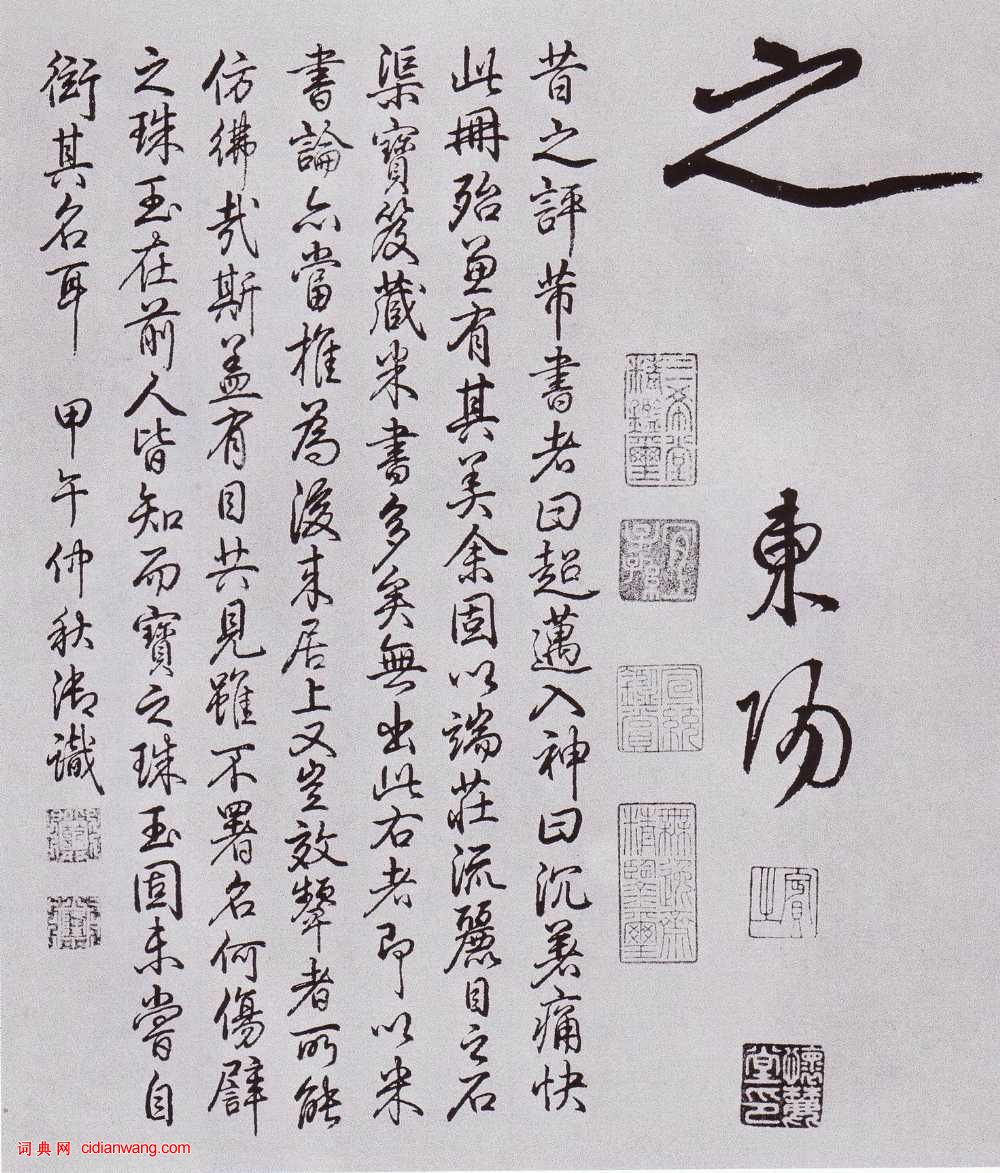 之
東陽
三希堂精鑑璽
宜子孫
宣統鑑賞
無逸齋精鑑璽
昔之評芾書者曰超邁入神曰沉著痛快
此冊殆兼有其美余固以端莊流麗目之石
渠寶笈藏米書多矣無出此右者即以米
書論亦當推為後來居上又豈效顰者所能
仿彿哉斯蓋有目共見雖不署名何傷譬
之珠玉在前人皆知而寶之珠玉固未嘗自
衒其名耳 甲午仲秋御識
词典网 cidianwang.com